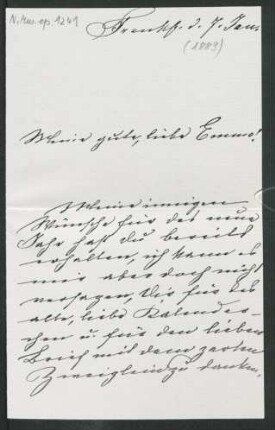 N. Mus. ep. 1241
Frankf. d. 7. Jan.
(1889)
Meine gute, liebe Emma!
Meine innigen
Wünsche für das neue
Jahr hast du bereits
erhalten, ich kann es
mir aber doch nicht
versagen, Dir für das
alte, liebe Kalender-
chen u. für den lieben
Brief mit dem zarten
Zweiglein zu danken,